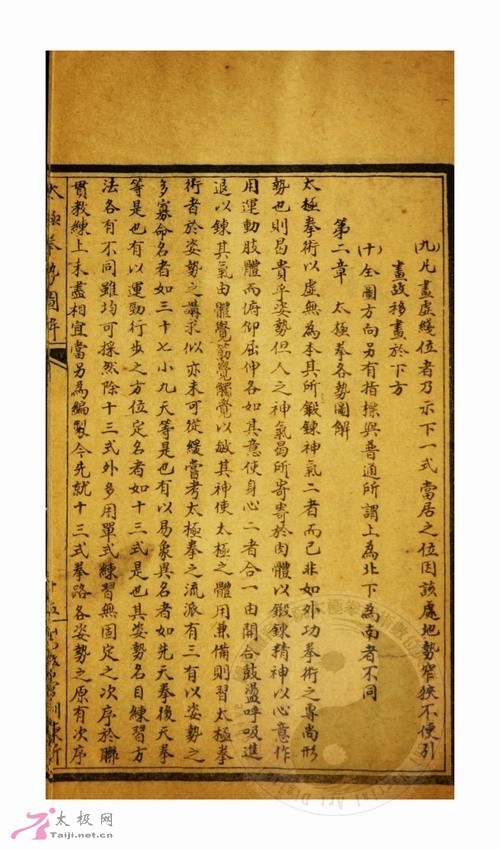 (九)凡畫虛綫位者乃示下一式當居之位因該處地勢窄狹不便引
畫故移畫於下方
(十)全圖方向另有指標與普通所謂上為北下為南者不同
第二章 太極拳各勢圖解
太極拳術以虛無為本其所鍛鍊神氣二者而已非如外功拳術之專尚形
勢也則曷貴乎姿勢但人之神氣曷所寄寄於肉體以鍛鍊精神以心意作
用運動肢體而俯仰屈伸各如其意使身心二者合一由開合鼓盪呼吸進
退以鍊其氣由體覺筋覺觸覺以敏其神使太極之體用兼備則習太極拳
術者於姿勢之講求似亦未可從緩嘗考太極拳之流派有三有以姿勢之
多寡命名者如三十七小九天等是也有以易象異名者如先天拳後天拳
等是也有以運動行步之方位定名者如十三式是也其姿勢名目練習方
法各有不同雖均可採然除十三式外多用單式練習無固定之次序於聯
貫教練上未盡相宜當另為編製今先就十三式拳路各姿勢之原有次序
太極拳勢圖解
十五
太极网
Taiji.net.cn